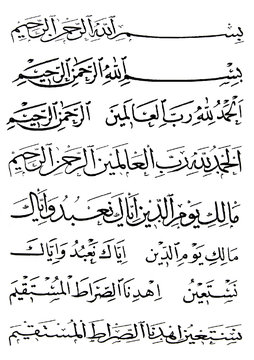 بسم الله الرحمن الرحيم
بِسْمِ اللهِ الرَّحْمٰنِ الرَّحِيْمِ
اَلْحَمْدُ لِلّٰهِ رَبِّ الْعَالَمِيْنَ الرَّحْمٰنِ الرَّحِيْمِ
الحمد لله رب العالمين الرحمن الرحيم
مالك يوم الدين اياك نعبد واياك
مَالِكِ يَوْمِ الدِّيْنِ اِيَّاكَ نَعْبُدُ وَاِيَّاكَ
نَسْتَعِيْنُ اِهْدِنَا الصِّرَاطَ الْمُسْتَقِيْمَ
نستعين اهدنا الصراط المستقيم